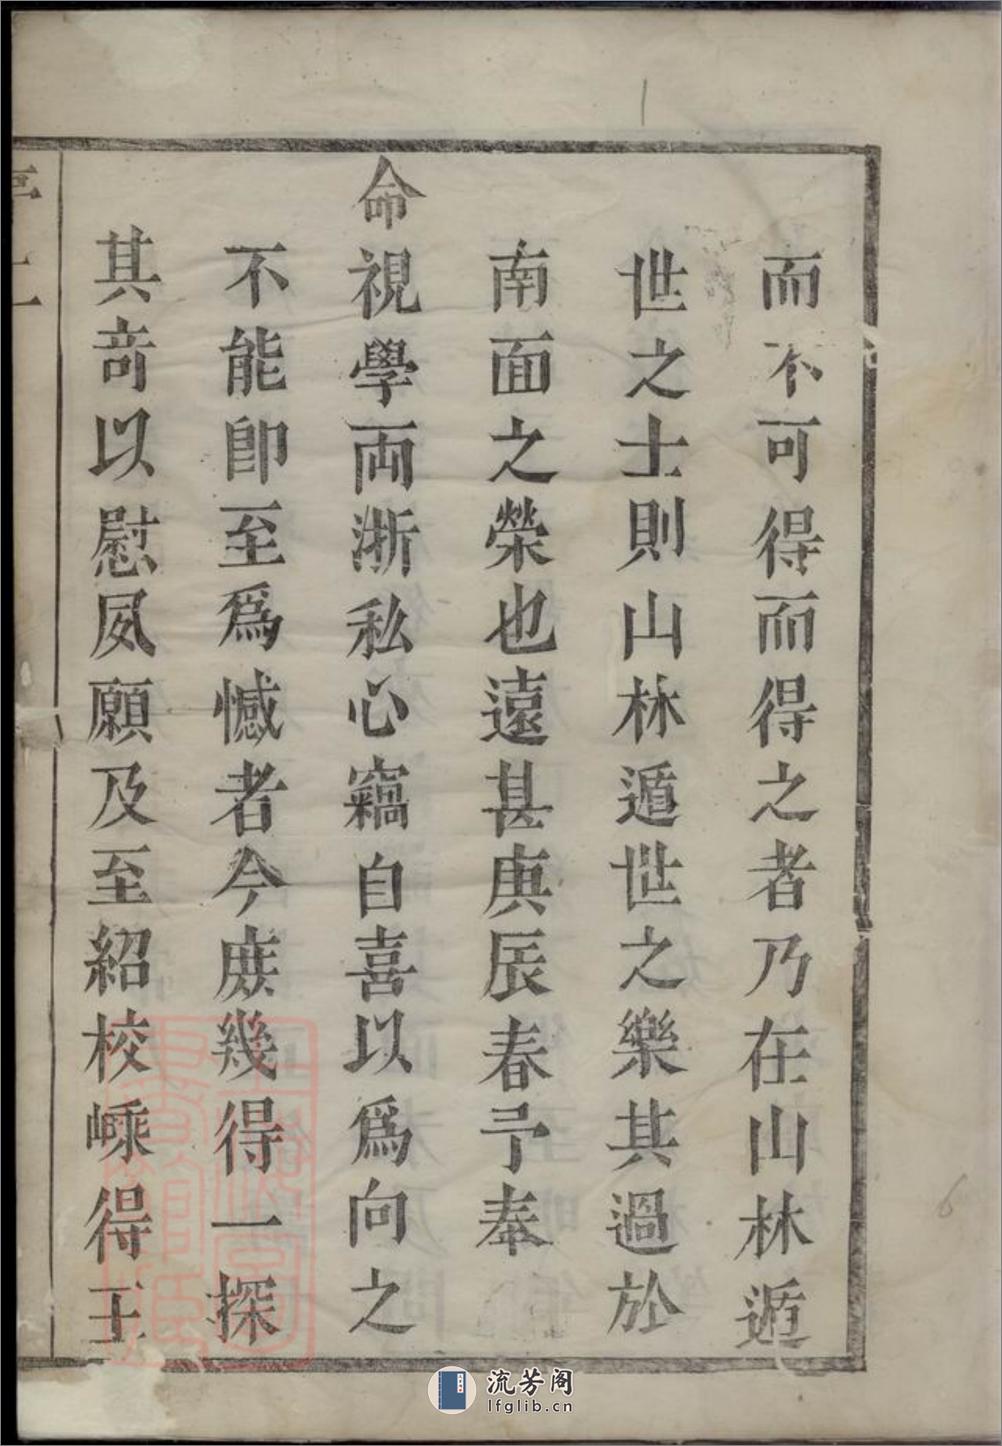 而不可得而得之者乃在山林遁
世之士則山林遁世之樂其過於
南面之榮也遠甚庚辰春予奉
命視學兩浙私心竊自喜以爲向之
不能卽至爲憾者今庶幾得一探
其奇以慰夙願及至紹校嵊得王
序 二
流芳阁
lfglib.cn
6